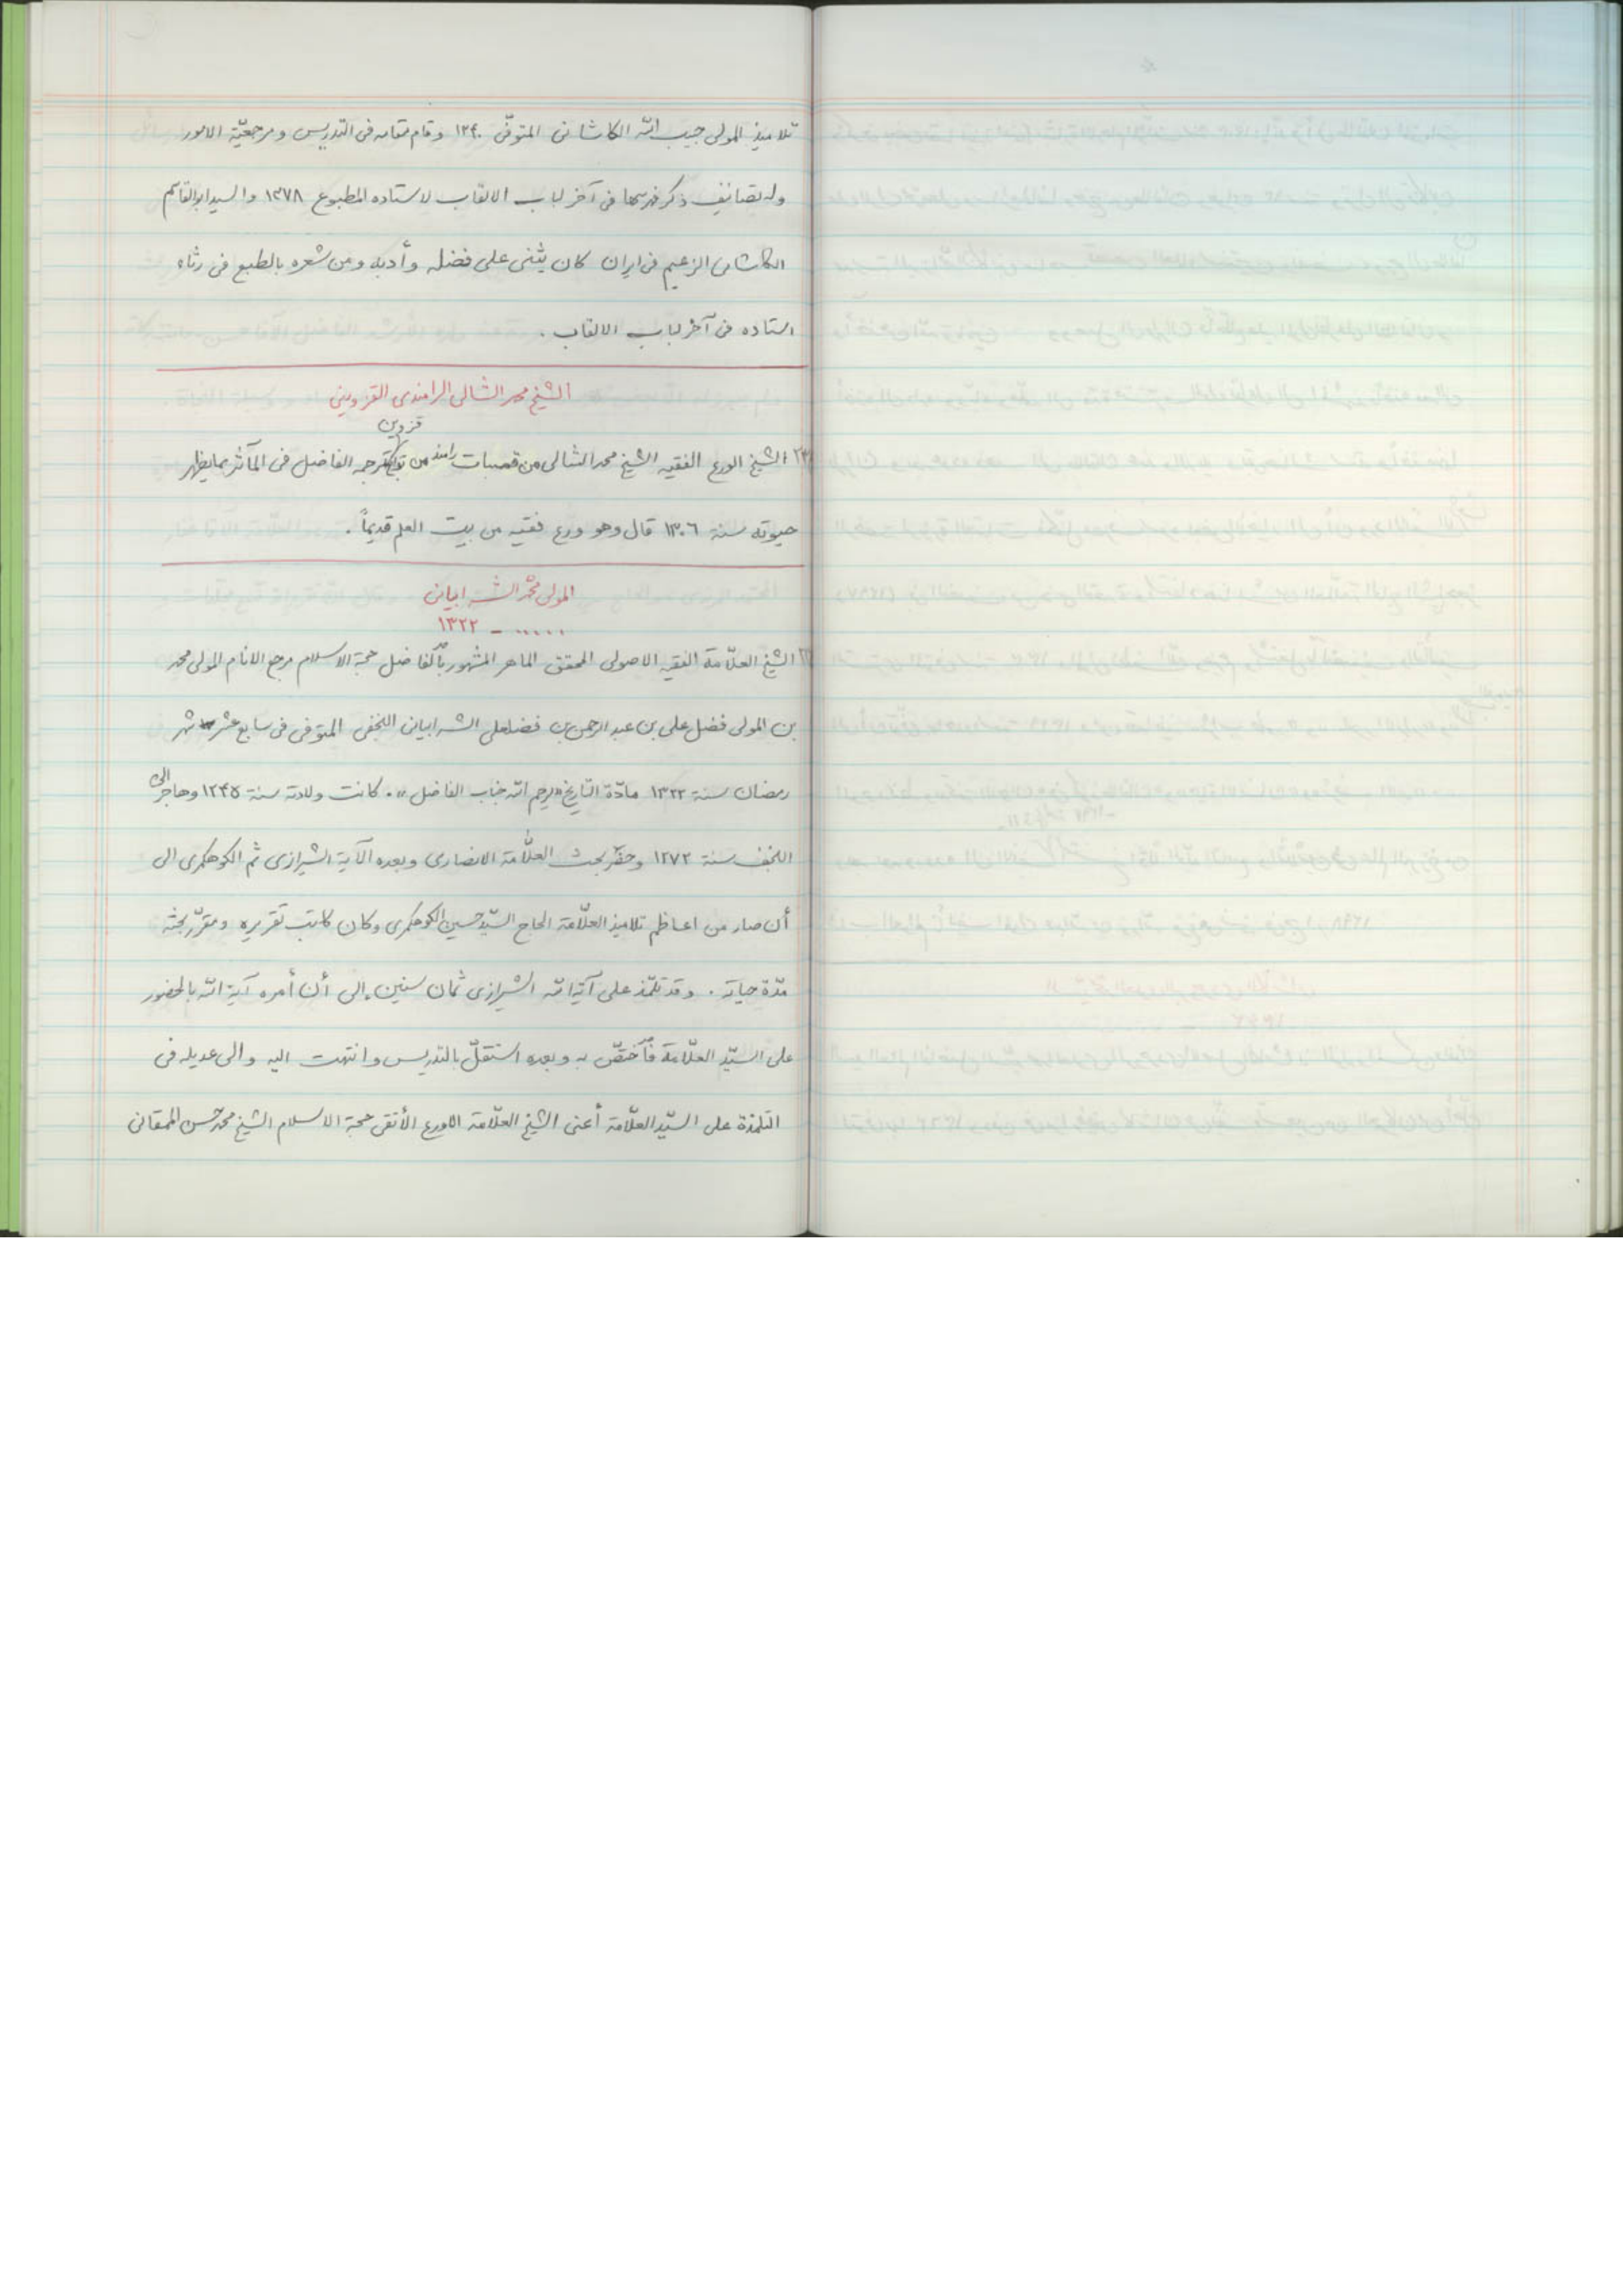 تلاميذ المولى حبيب الله الكاشانى المتوفّى ١٣٤٠ وقام مقامه فى التدريس ومرجعيّة الامور
وله تصانيف ذكر فهرسها فى آخر لباب الالقاب لاستاده المطبوع ١٣٧٨ والسيد ابوالقاسم
الكاشانى الزعيم فى ايران كان يثنى على فضله وأدبه ومن شعره بالطبع فى رثاء
استاده فى آخر لباب الالقاب .
الشيخ محمد الشالى الرامندى القزوينى
الشيخ الورع الفقيه الشيخ محمد الشالى من قصبات رامند من توابع قزوين ترجمه الفاضل فى المآثر بما يظهر
حيوته سنة ١٣٠٦ قال وهو ورع فقيه من بيت العلم قديماً .
المولى محمّد الشرابيانى
..... - ١٣٢٢
الشيخ العلّامة الفقيه الاصولى المحقق الماهر المشهور بالفاضل حجة الاسلام مرجع الانام المولى محمد
بن المولى فضل على بن عبد الرحمن بن فضلعلى الشرابيانى النجفى المتوفى فى سابع عشر شهر
رمضان سنة ١٣٢٢ مادّة التاريخ «يرحم الله جناب الفاضل» . كانت ولادته سنة ١٢٤٥ وهاجر الى
النجف سنة ١٢٧٢ وحضر بحث العلّامة الانصارى وبعده الآية الشيرازى ثم الكوهكمرى الى
أن صار من اعاظم تلاميذ العلّامة الحاج السيّد حسين الكوهكمرى وكان كاتب تقريره ومقرّر بحثه
مدّة حياته . وقد تلمّذ على آية الله الشيرازى ثمان سنين إلى أن أمره آية الله بالحضور
على السيّد العلّامة فأختصّ به وبعده استقلّ بالتدريس وانتهت اليه والى عديله فى
التلمذة على السيّد العلّامة أعنى الشيخ العلّامة الاورع الأتقى حجة الاسلام الشيخ محمد حسن المامقانى